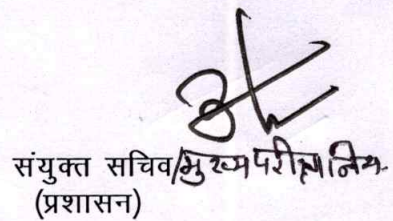 संयुक्त सचिव/मुख्य परीक्षा निय.
(प्रशासन)